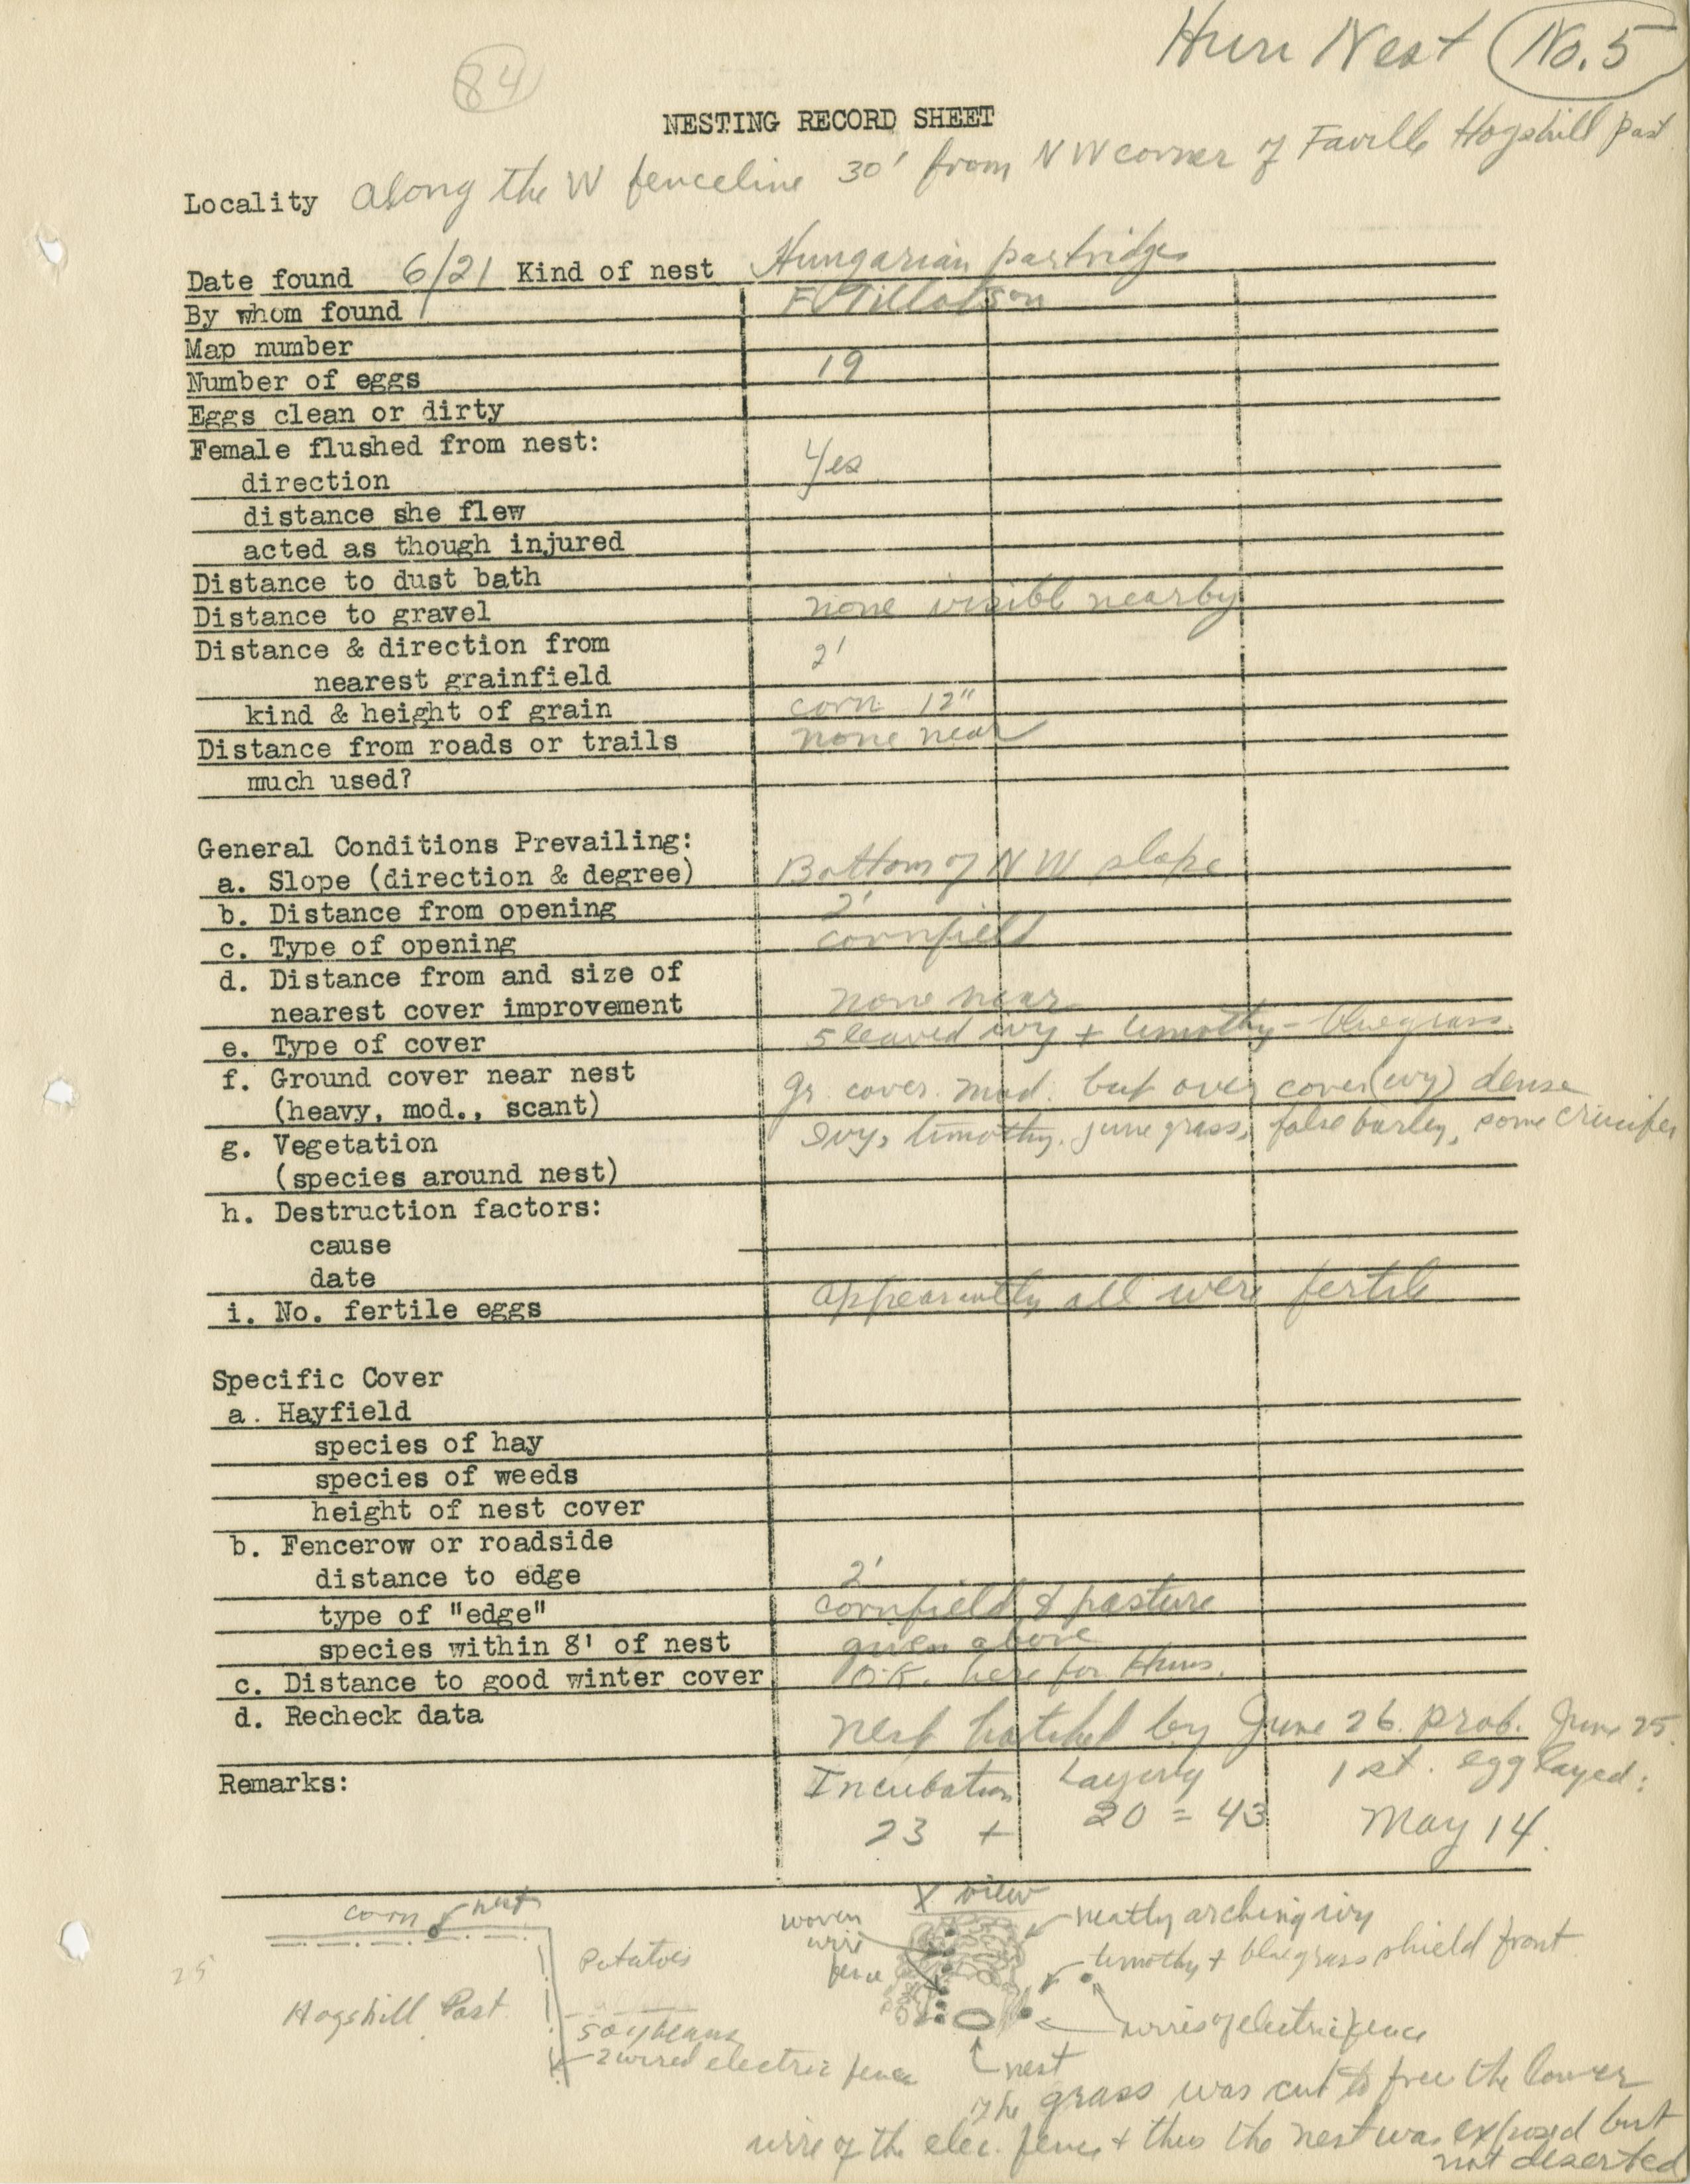 Hun Nest No. 5
84
NESTING RECORD SHEET
Locality along the W fenceline 30' from NW corner of Faville Hogshill Past
Date found 6/21 Kind of nest Hungarian partridge
By whom found F. Tillotson
Map number
Number of eggs 19
Eggs clean or dirty
Female flushed from nest: Yes
direction
distance she flew
acted as though injured
Distance to dust bath
Distance to gravel none visibl nearby
Distance & direction from 2'
nearest grainfield
kind & height of grain corn 12"
Distance from roads or trails none near
much used?
General Conditions Prevailing:
a. Slope (direction & degree) Bottom of NW slope
b. Distance from opening 2'
c. Type of opening cornfield
d. Distance from and size of
nearest cover improvement none near
e. Type of cover 5 leaved ivy + timothy - bluegrass
f. Ground cover near nest gr. cover mod. but over cover (ivy) dense
(heavy, mod., scant)
g. Vegetation Ivy, timothy, june grass, false barley, some crucifer
(species around nest)
h. Destruction factors:
cause
date
i. No. fertile eggs appearantly all were fertile
Specific Cover
a. Hayfield
species of hay
species of weeds
height of nest cover
b. Fencerow or roadside
distance to edge 2'
type of "edge" cornfield & pasture
species within 8' of nest given above
c. Distance to good winter cover O.K. here for Huns.
d. Recheck data nest hatched by June 26. prob. June 25.
Remarks: Incubation Laying 1st. egg layed:
23 + 20 = 43 May 14.
X view
corn nest
woven
wire
fence
neatly arching ivy
timothy + bluegrass shield front
25
Potatoes
Hogshill Past.
soybeans
wires of electric fence
2 wired electric fence
nest
The grass was cut to free the lower
wire of the elec. fence + thus the nest was exposed but
not deserted